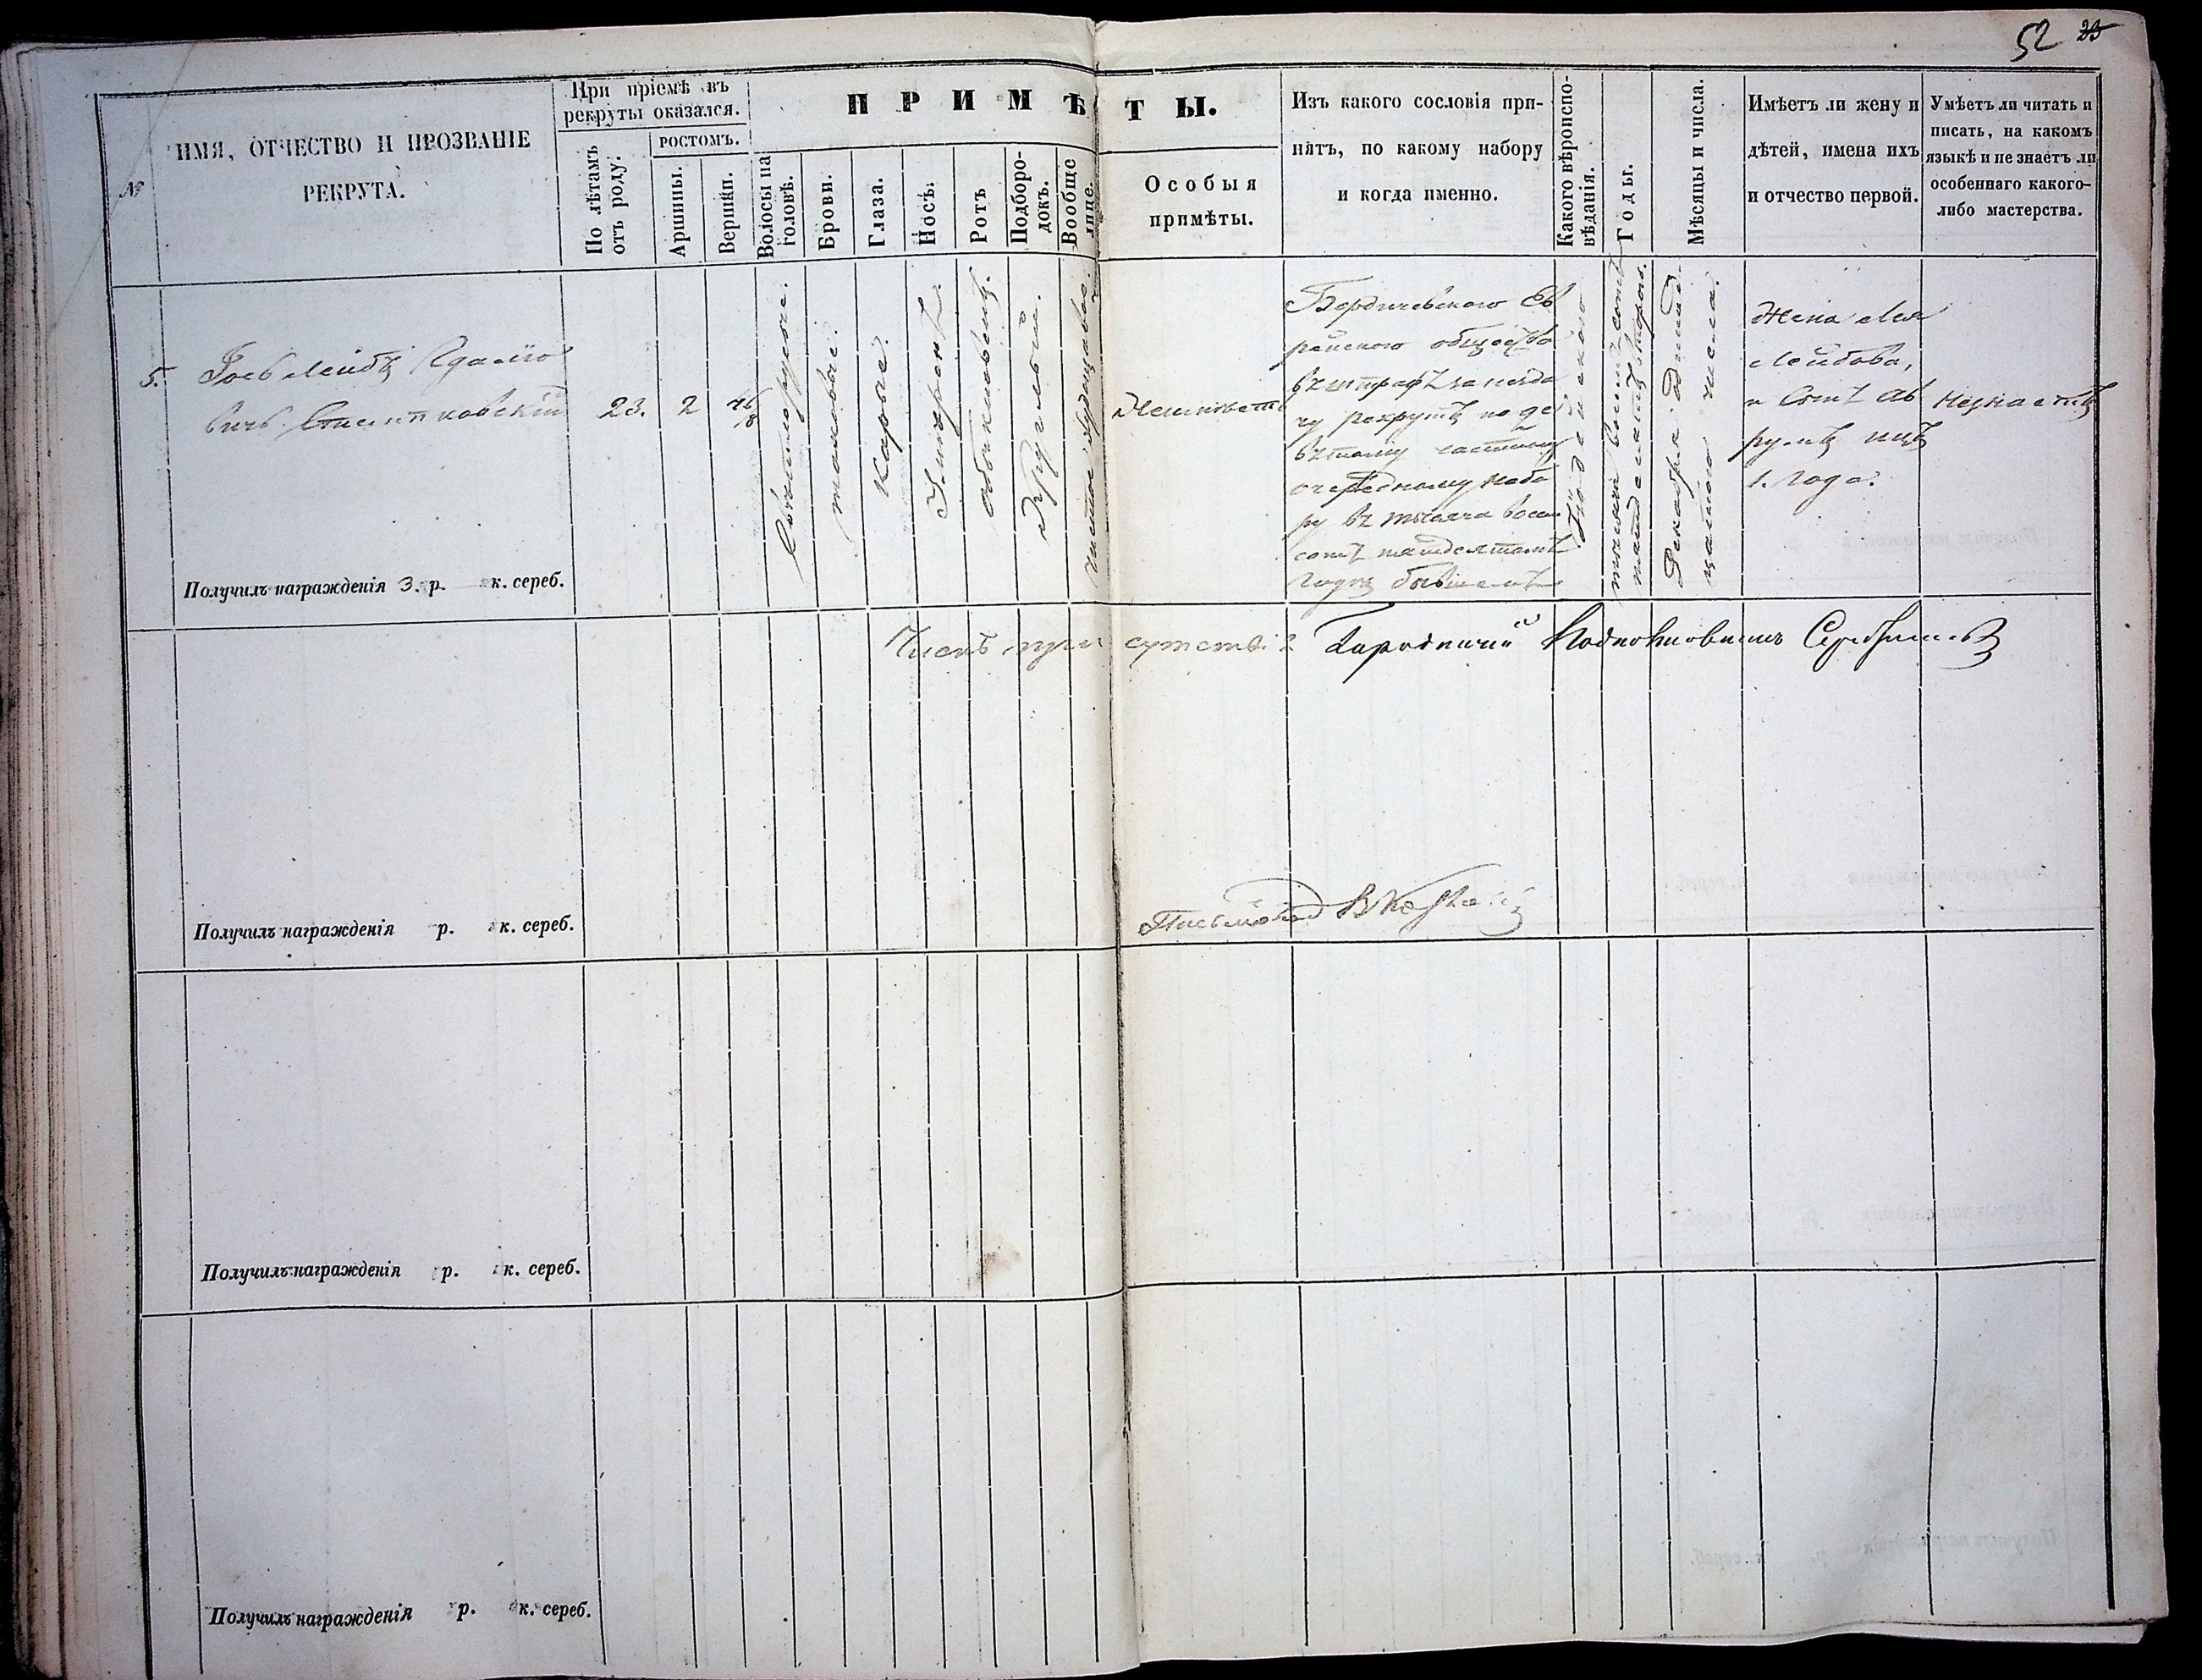 52 23
№
ИМЯ, ОТЧЕСТВО И ПРОЗВАНІЕ
РЕКРУТА.
При пріемѣ въ
рекруты оказался.
По лѣтамъ
отъ роду.
РОСТОМЪ.
Аршины.
Вершки.
ПРИМѢТЫ.
Волосы на
головѣ.
Брови.
Глаза.
Носъ.
Ротъ
Подборо-
докъ.
Вообще
лице.
Особыя
примѣты.
Изъ какого сословія при-
нятъ, по какому набору
и когда именно.
Какого вѣроиспо-
вѣданія.
Годы.
Мѣсяцы и числа.
Имѣетъ ли жену и
дѣтей, имена ихъ
и отчество первой.
Умѣетъ ли читать и
писать, на какомъ
языкѣ и не знаетъ ли
особеннаго какого-
либо мастерства.
5.
Іось Лейбъ
вичъ
23.
2
Свѣтлорусые.
таковые.
Карые.
Умѣренъ.
обыкновенъ.
Круглый.
чистое
Неимѣетъ
Бердичевского Ев
рейского общества
въ штрафъ за недо
чу рекрутъ по де
вятому частному
очередному набо
ру въ тысяча восем
сотъ пятдесятомъ
году бывшемъ
Іудейского
тысяча восемсотъ
пятдесятъ втораго.
Декабря двад
цатаго числа.
Жена Лея
Лейбова,
и сынъ Ав
румъ
1. года.
Незнаетъ
Получилъ награжденія 3. р. к. сереб.
Членъ присутствія Городничій Подполковникъ
Получилъ награжденія р. к. сереб.
Письмовод
Получилъ награжденія р. к. сереб.
Получилъ награжденія р. к. сереб.